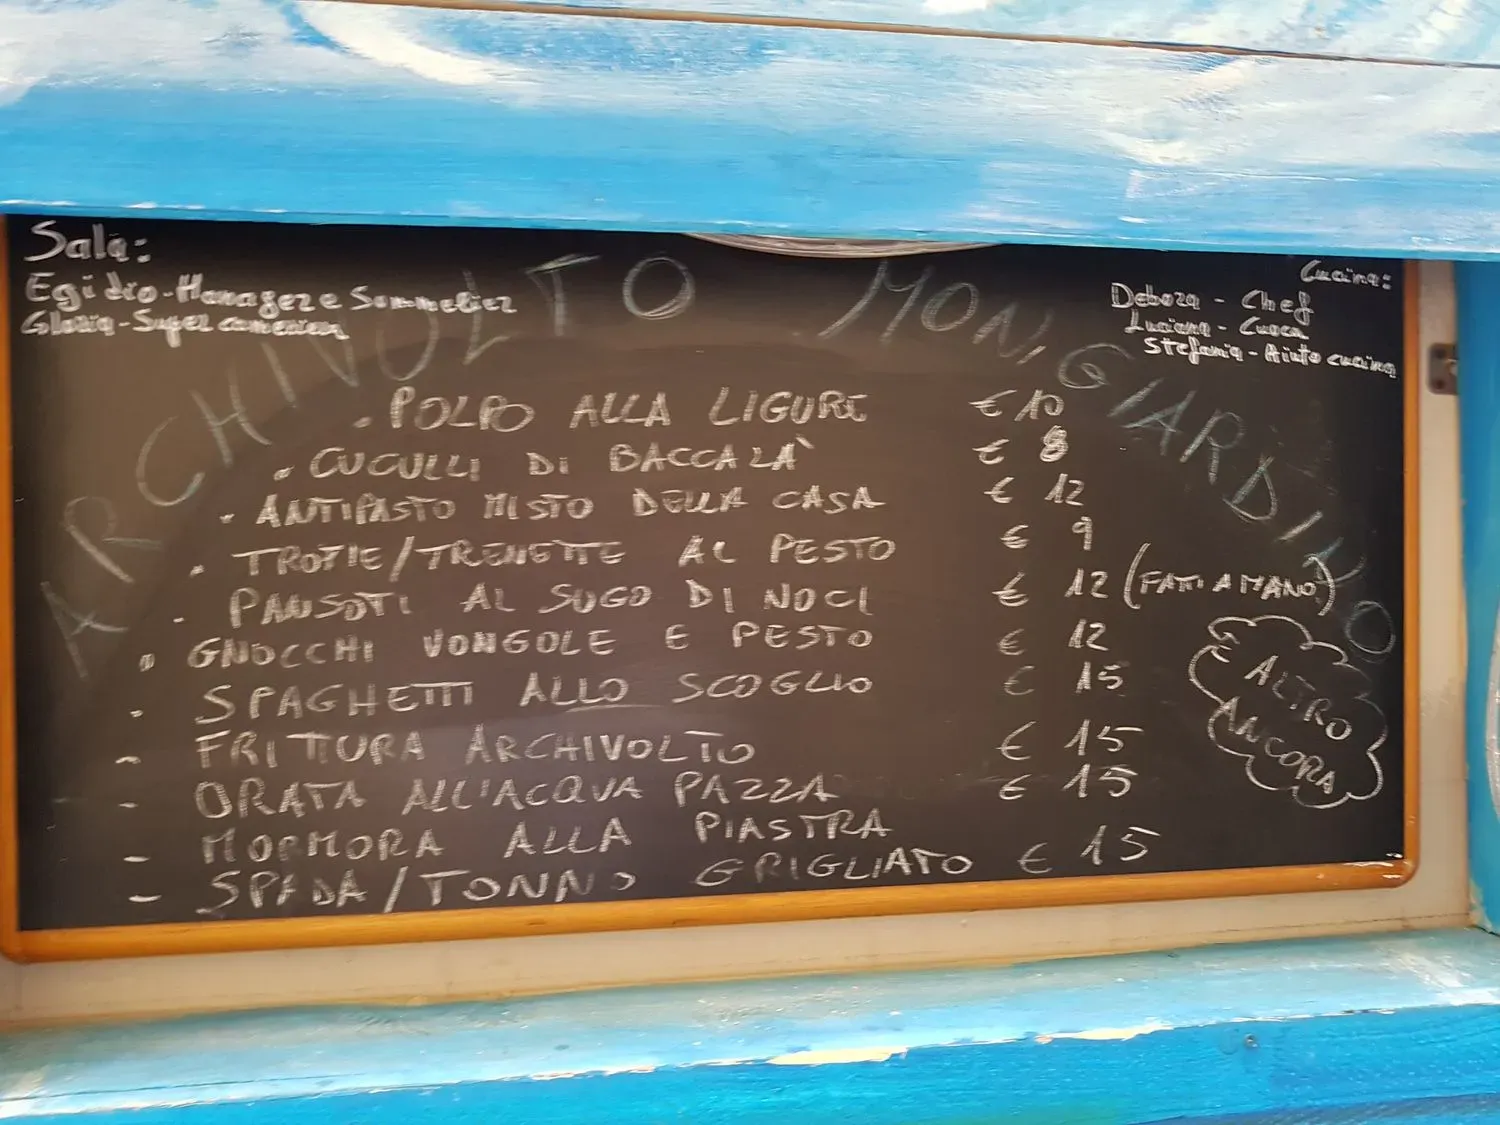 Sala:
Egidio-Manager e Sommelier
Gloria-Super cameriera
Cucina:
Debora - Chef
Luciana - Cuoca
Stefania - Aiuto cucina
ARCHIVOLTO MONGIARDINO
. POLPO ALLA LIGURE € 10
. CUCULLI DI BACCALÀ € 8
. ANTIPASTO MISTO DELLA CASA € 12
. TROFIE/TRENETTE AL PESTO € 9
. PANSOTI AL SUGO DI NOCI € 12 (FATTI A MANO)
. GNOCCHI VONGOLE E PESTO € 12
. SPAGHETTI ALLO SCOGLIO € 15
- FRITTURA ARCHIVOLTO € 15
- ORATA ALL'ACQUA PAZZA € 15
- MORMORA ALLA PIASTRA
- SPADA/TONNO GRIGLIATO € 15
E ALTRO
ANCORA